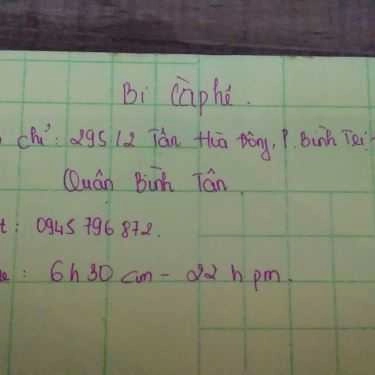 Bi Càphê.
chỉ: 295/2 Tân Hoà Đông, P. Bình Trị
Quận Bình Tân
t: 0945 796 872.
6h30 am - 22h pm.